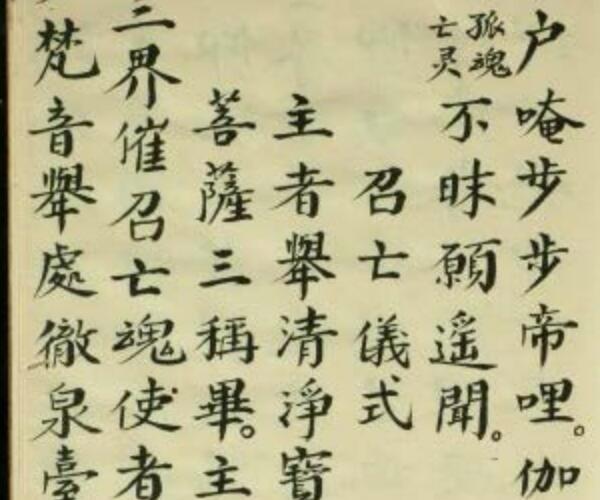 户唵步步帝哩。伽
孤魂亡灵不昧願遥聞。
召亡儀式
主者舉清淨寶
菩薩三稱畢。主
三界催召亡魂使者
梵音舉處徹泉臺